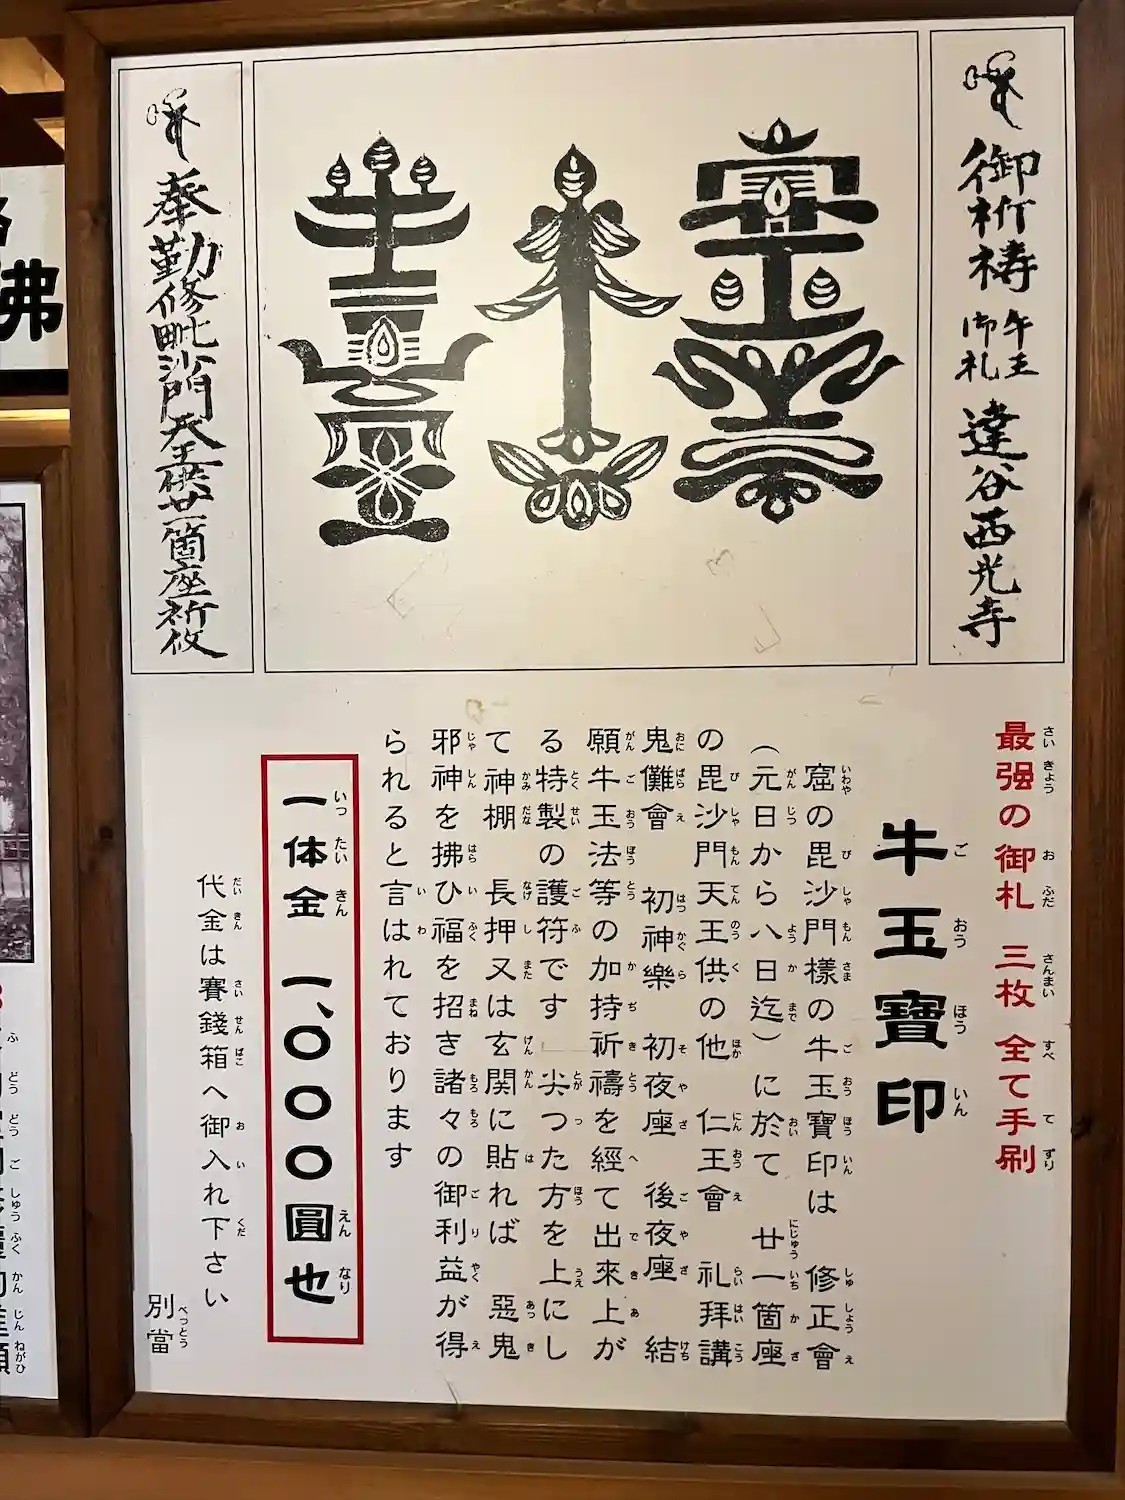 御祈祷 牛王御札 達谷西光寺
奉勤修毗沙門天王供廿一箇座祈攸
最強の御札 三枚 全て手刷
牛玉寶印
窟の毘沙門樣の牛玉寶印は 修正會
（元日から八日迄）に於て 廿一箇座
の毘沙門天王供の他 仁王會 礼拝講
鬼儺會 初神樂 初夜座 後夜座 結
願牛玉法等の加持祈禱を經て出來上が
る特製の護符です 尖つた方を上にし
て神棚 長押又は玄関に貼れば 惡鬼
邪神を拂ひ福を招き諸々の御利益が得
られると言はれております
一体金 一、〇〇〇圓也
代金は賽錢箱へ御入れ下さい
別當
佛